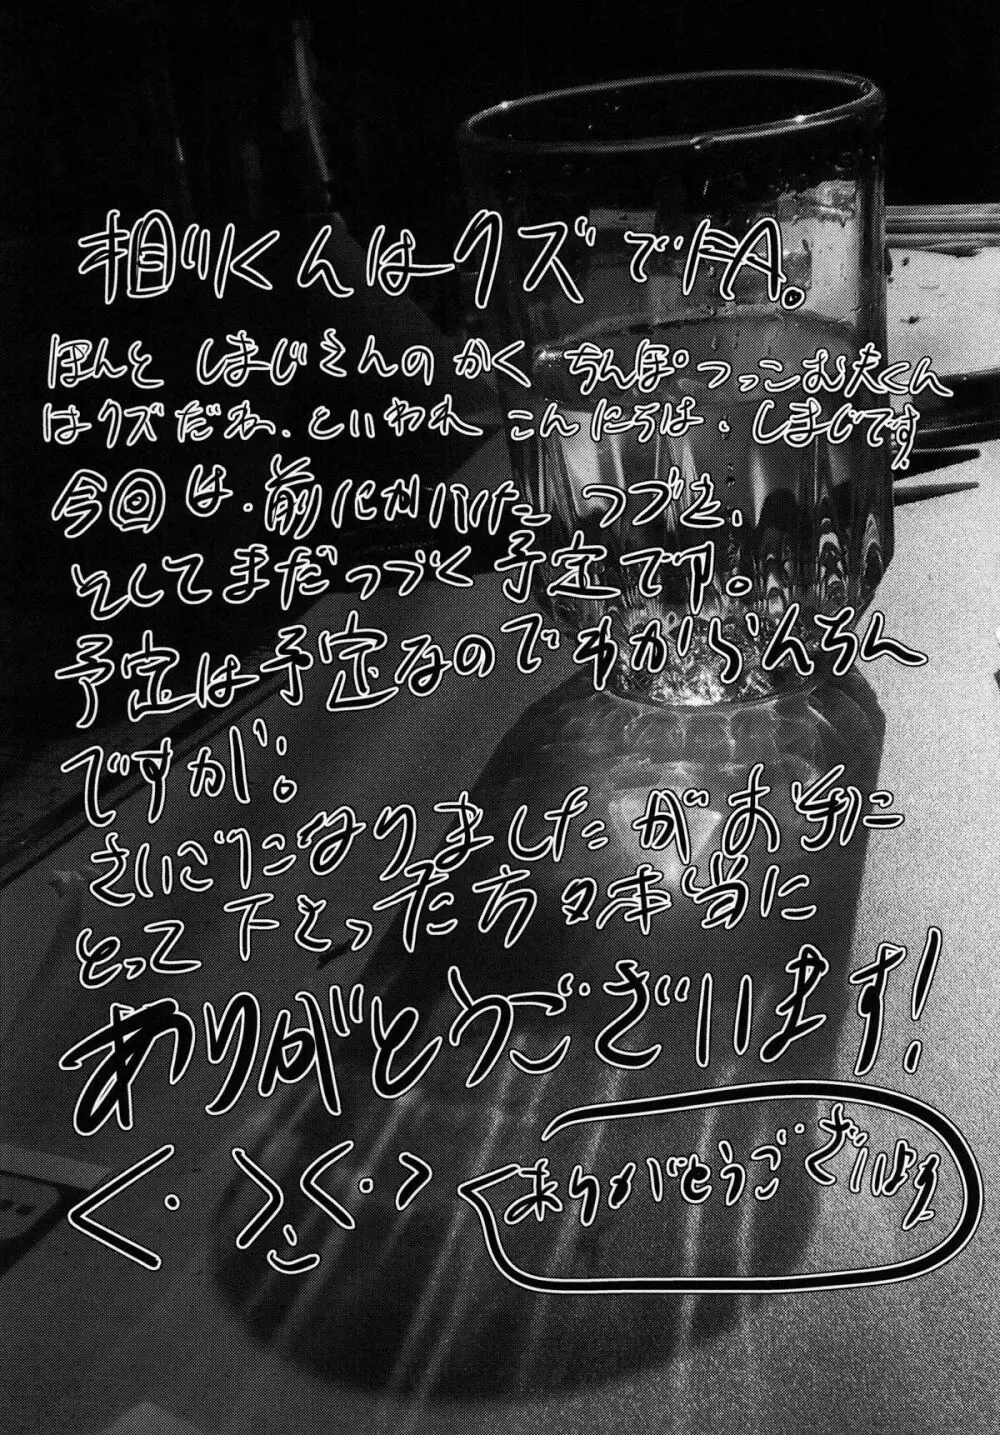 相川くんはクズでFA。
ほんと しまじさんのかく ちんぽつっこむ夫くん
はクズだね、といわれ こんにちは、しまじです
今回は、前にかいた つづき、
そしてまだつづく予定です。
予定は予定なのでわからんちん
ですが。
さいごになりましたがお手に
とって下さった方々本当に
ありがとうございます!
ありがとうございます